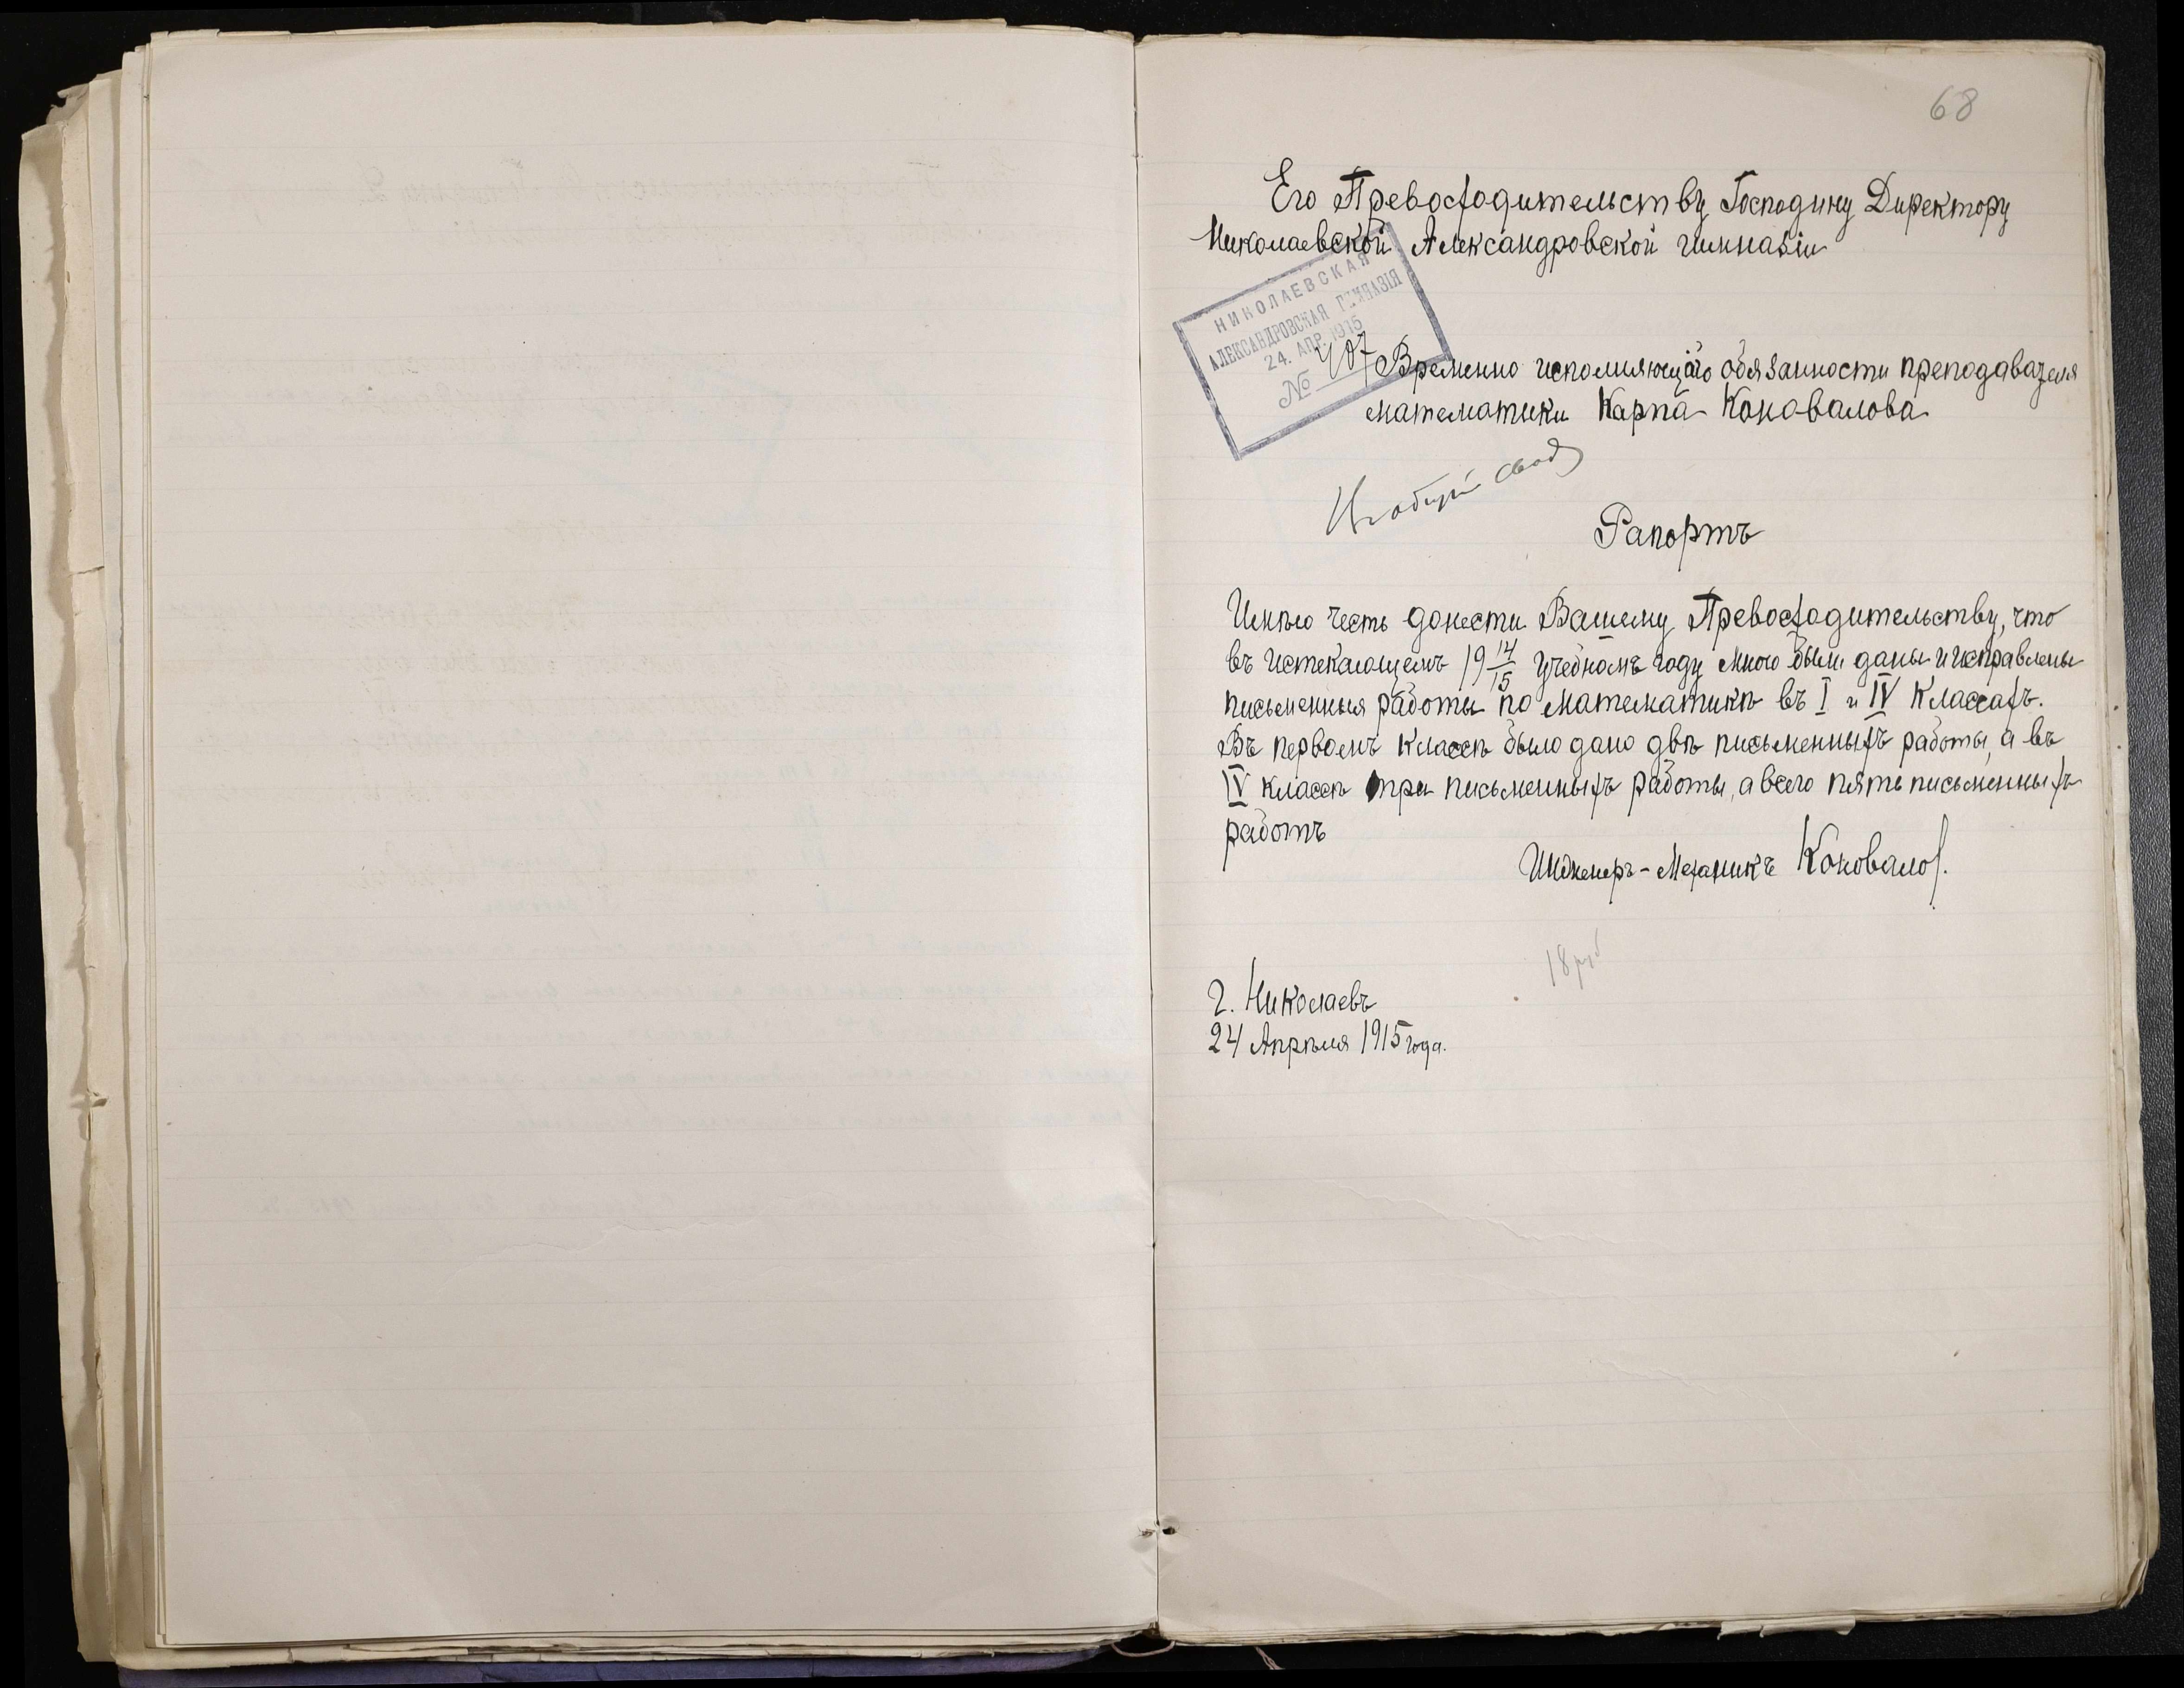 68
Его Превосходительству Господину Директору
Николаевской Александровской гимназіи
НИКОЛАЕВСКАЯ
АЛЕКСАНДРОВСКАЯ ГИМНАЗІЯ
24. АПР. 1915
№ 407
Временно исполняющаго обязанности преподавателя
математики Карпа Коновалова
Рапортъ
Имѣю честь донести Вашему Превосходительству, что
въ истекающемъ 19 14/15 учебномъ году мною были даны и исправлены
письменныя работы по математикѣ въ I и IV классахъ.
Въ первомъ классѣ было дано двѣ письменныхъ работы, а въ
IV классѣ три письменныхъ работы, а всего пять письменныхъ
работъ
Инженеръ-Механикъ Коновалов.
18 руб
г. Николаевъ
24 Апрѣля 1915 года.